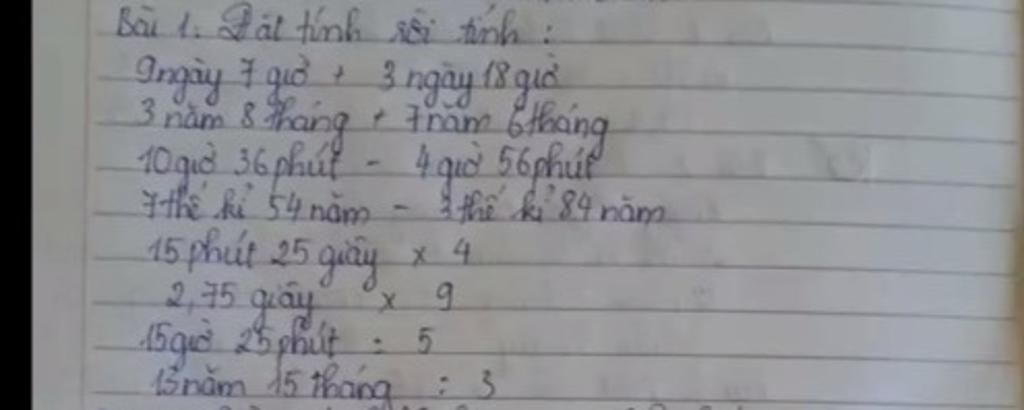 Bài 1. Đặt tính rồi tính :
9ngày 7 giờ + 3 ngày 18 giờ
3 năm 8 tháng + 7 năm 6 tháng
10 giờ 36 phút - 4 giờ 56 phút
7 thế kỉ 54 năm - 3 thế kỉ 84 năm
15 phút 25 giây x 4
2,75 giây x 9
15 giờ 25 phút : 5
15 năm 15 tháng : 3